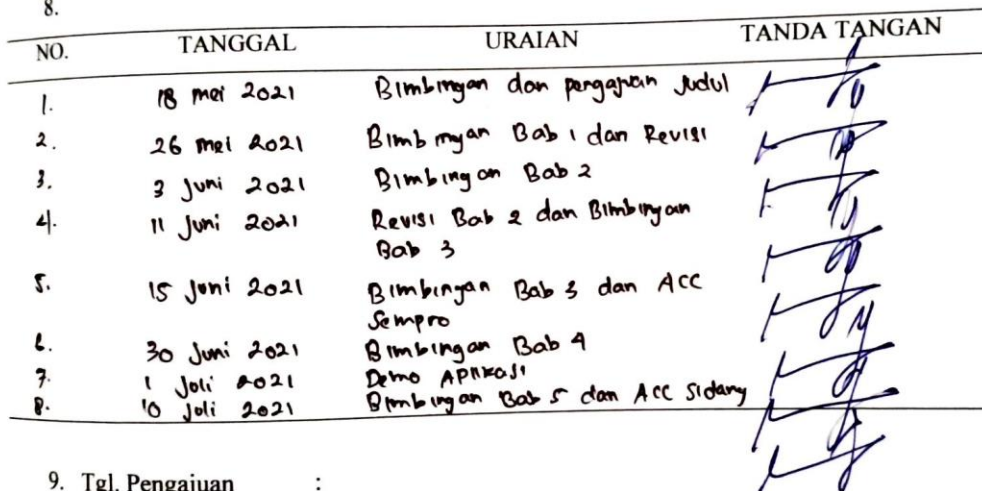 8.
NO. TANGGAL URAIAN TANDA TANGAN
1. 18 mei 2021 Bimbingan dan pengajuan Judul
2. 26 mei 2021 Bimbingan Bab 1 dan Revisi
3. 3 Juni 2021 Bimbingan Bab 2
4. 11 Juni 2021 Revisi Bab 2 dan Bimbingan
Bab 3
5. 15 Juni 2021 Bimbingan Bab 3 dan ACC
Sempro
6. 30 Juni 2021 Bimbingan Bab 4
7. 1 Juli 2021 Demo Aplikasi
8. 10 Juli 2021 Bimbingan Bab 5 dan ACC Sidang
9. Tgl. Pengajuan :